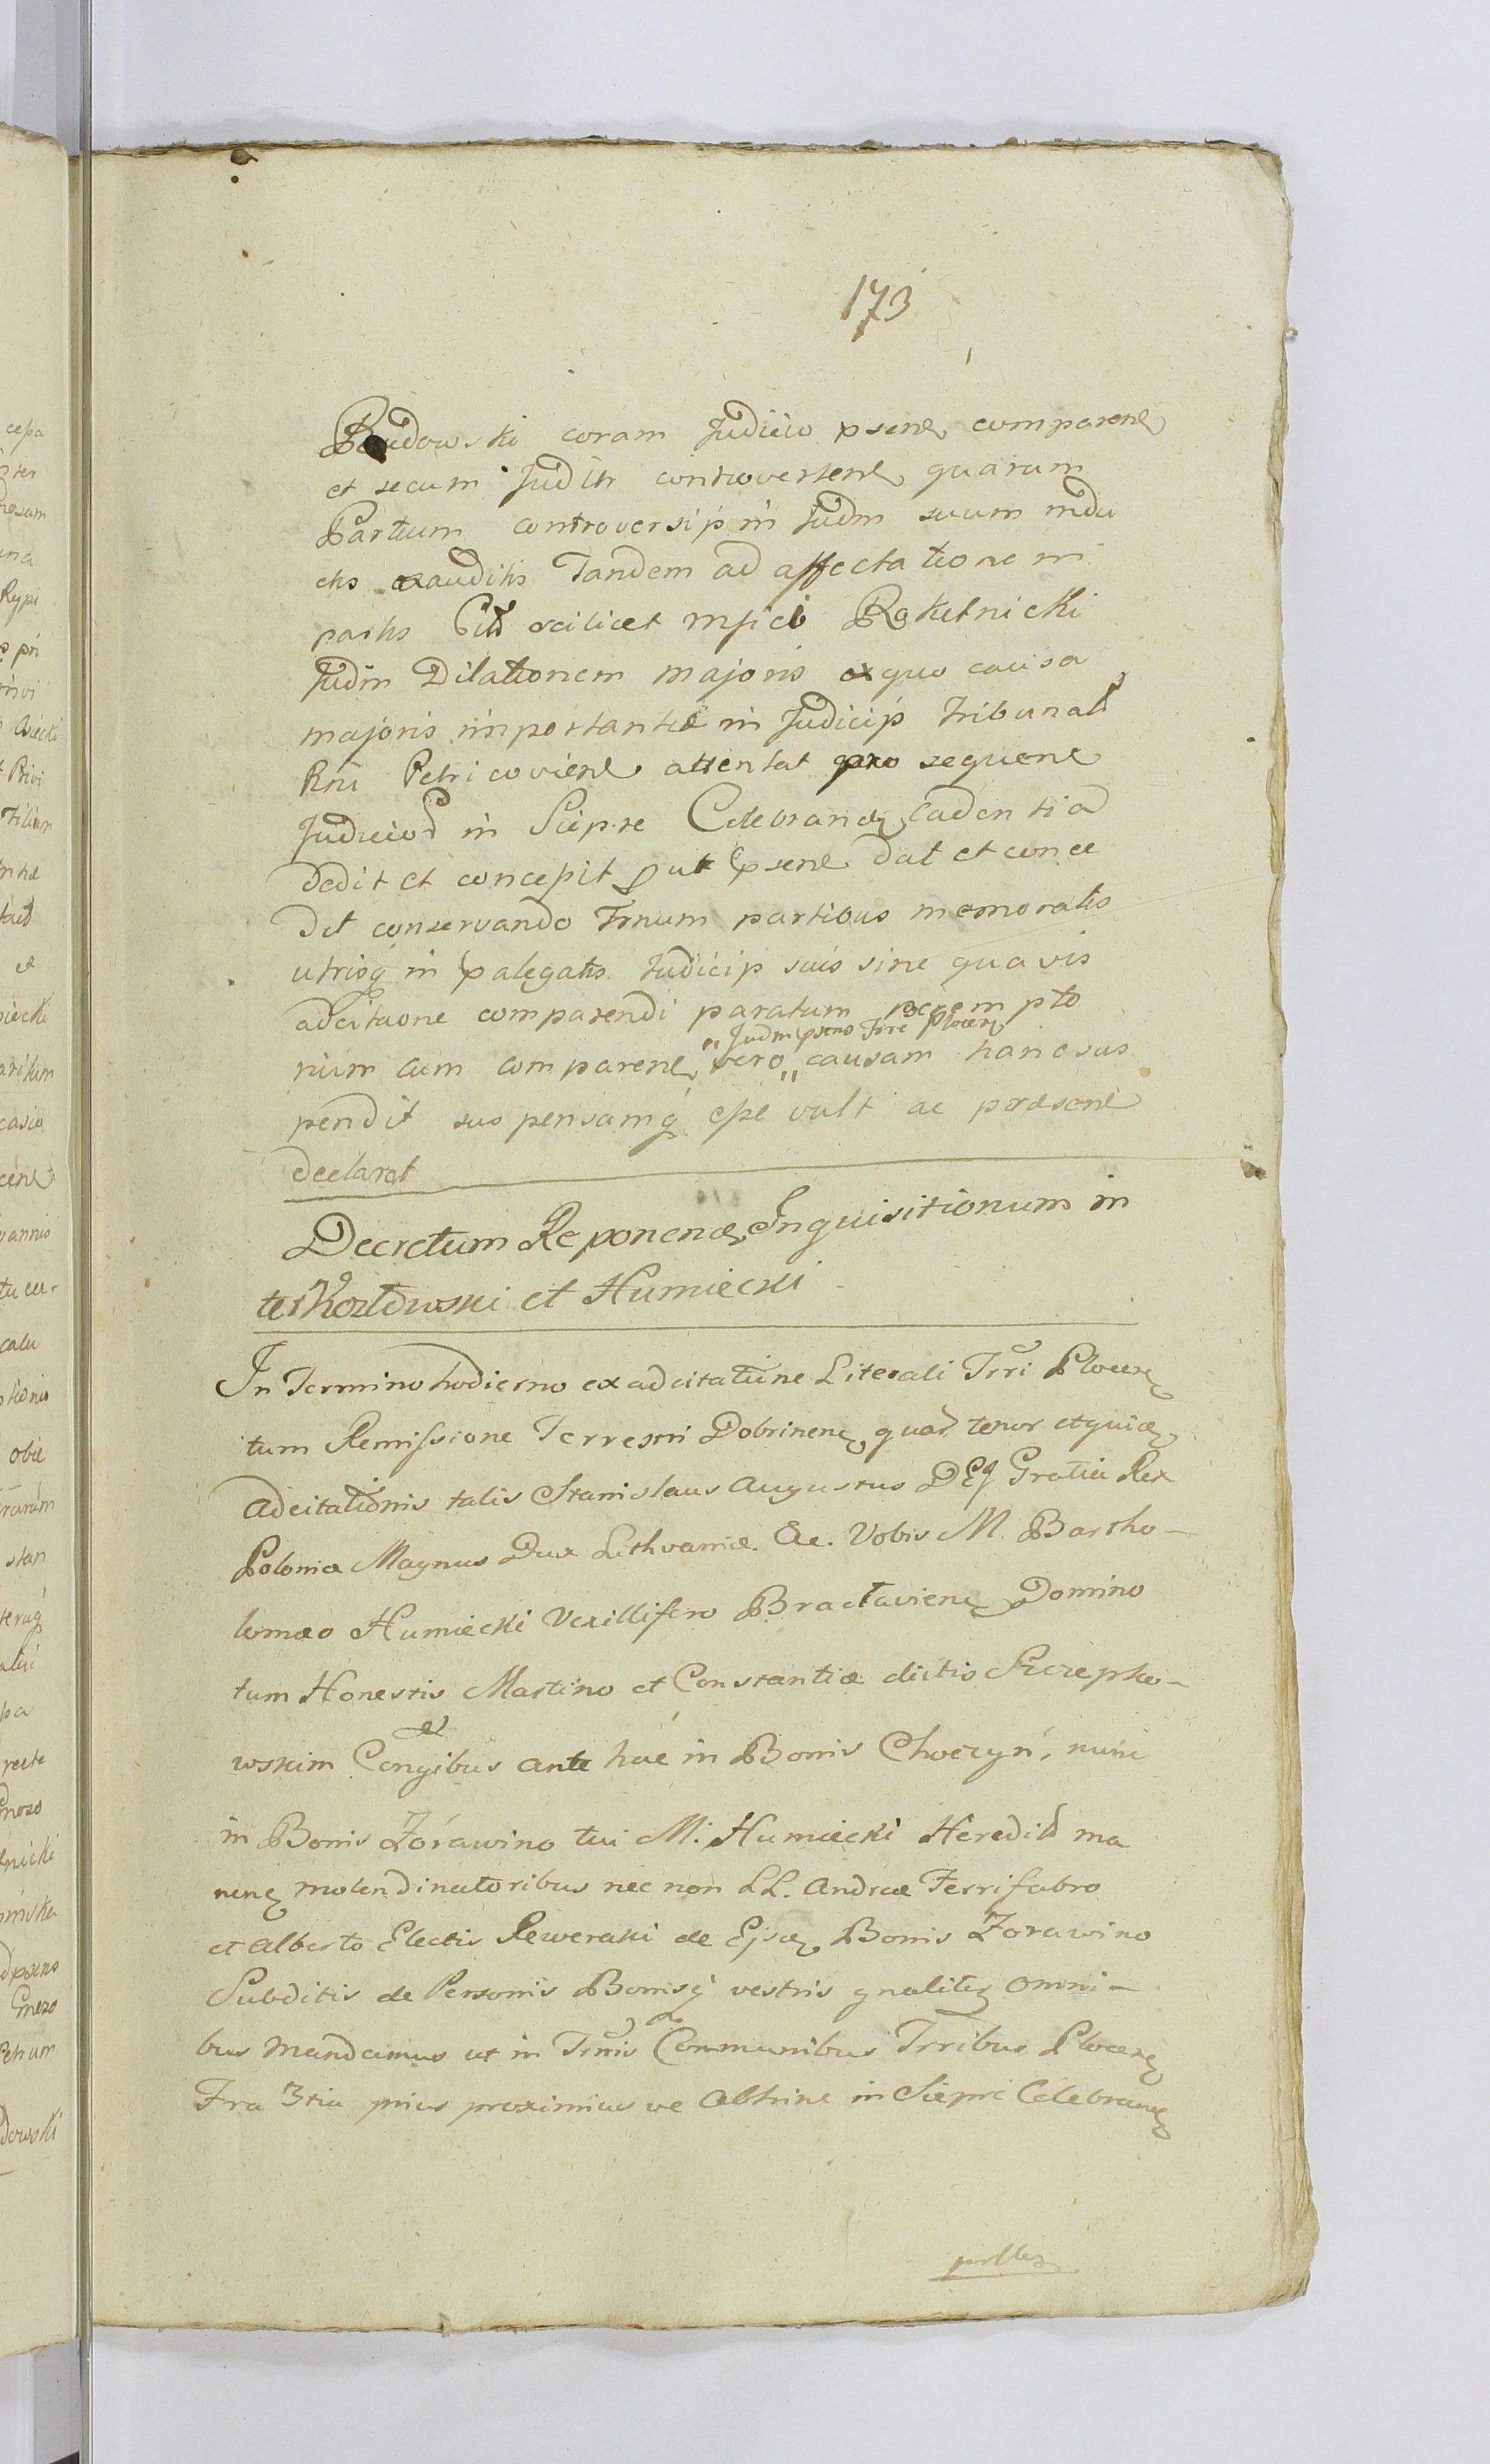 173
Budowski coram Judicio psene comparene
et secum Judlr controvertene quarum
Partium controversijs in Judm suum indu
ctis exauditis Tandem ad affectationem
partis scilicet Mfici Rokitnicki
Judm Dilationem majoris ex quo causa
majoris importantiæ in Judicijs Tribunal
Rni Petricoviene attentat pro sequene
Judicio in Sieprc Celebrand Cadentia
dedit et concepit put psene dat et conce
dit conservando Trnum partibus memoratis
utrisq in palegatis Judicijs suis sine quavis
adcitaone comparendi paratum perempto
"Judm psens Trre Plocen
rium cum comparene vero " causam hanc sus
pendit suspensamq esse vult ac præsene
declarat
Decretum Reponend Inquisitionum in
ter Kozłowski et Humiecki
In Termino hodierno ex adcitatione Literali Trri Plocen
tum Remissione Terrestri Dobrinen quar tenor et quid
adcitationis talis Stanislaus Augustus DEI Gratia Rex
Poloniæ Magnus Dux Lithvaniæ &c. Vobis M. Bartho-
lomæo Humiecki Vexillifero Bracłavien Domino
tum Honestis Martino et Constantiæ dictis Szczepko-
wskim Congibus ante hac in Bonis Choczyń, nunc
in Bonis Zórawino tui M. Humiecki Heredit ma
nen molendinatoribus nec non LL. Andreæ Ferrifabro
et Alberto Electis Rewerski de Ejsd Bonis Zorawino
Subditis de Personis Bonisq vestris gnaliter omni-
bus mandamus ut in Trnis Communibus Trribus Plocen
Fra 3tia prius proximius ve abhinc in Sieprc Celebrand